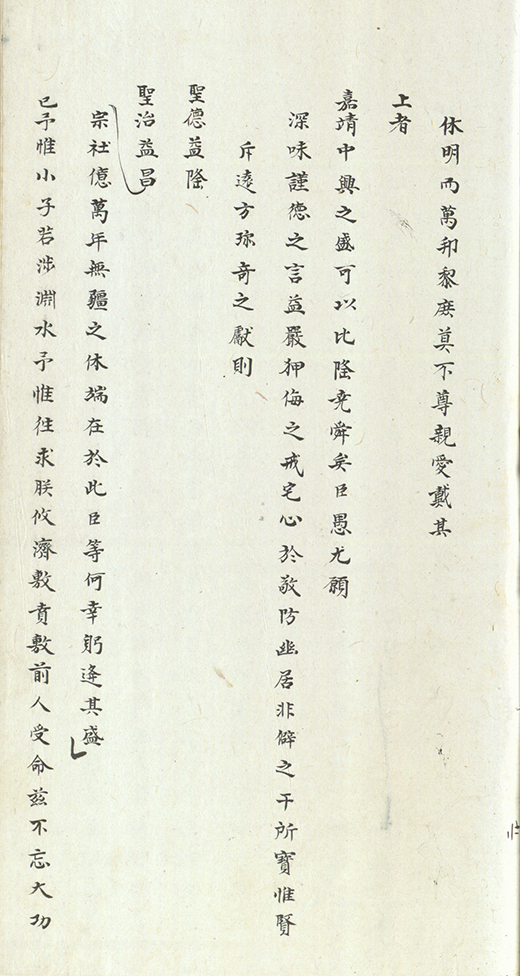 休明而萬邦黎庶莫不尊親愛戴其
上者
嘉靖中興之盛可以比隆堯舜矣臣愚尤願
深味謹德之言益嚴狎侮之戒宅心於敬防幽居非僻之干所寶惟賢
斥遠方珎奇之獻則
聖德益隆
聖治益昌
宗社億萬年無疆之休端在於此臣等何幸躬逢其盛
已予惟小子若涉淵水予惟徃求朕攸濟敷賁敷前人受命茲不忘大功